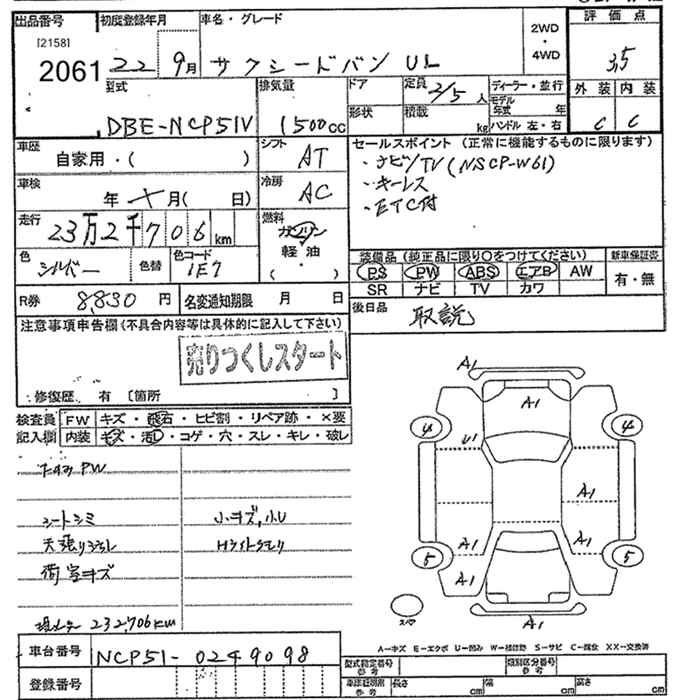 出品番号 初度登録年月 車名・グレード 2WD・4WD 評価点
[2158]
2061 22 9月 サクシードバン UL 3.5
型式 排気量 ドア 定員 2/5人 ディーラー・並行 外装 内装
DBE-NCP51V 1500cc 形状 積載 kg モデル年式 年 ハンドル 左・右 C C
車歴 自家用・( ) シフト AT セールスポイント (正常に機能するものに限ります)
・ナビ/TV (NSCP-W61)
車検 年 月( 日) 冷房 AC ・キーレス
・ETC付
走行 23万2千706km 燃料 ガソリン 軽油 ( ・ )
色 シルバー 色替 色コード 1E7
装備品 (純正品に限り○をつけてください) 新車保証書
PS PW ABS エアB AW 有・無
SR ナビ TV カワ
R券 8,830円 名変通知期限 月 日 後日品 取説
注意事項申告欄(不具合内容等は具体的に記入して下さい)
売りつくしスタート
修復歴 有 〔箇所 〕
検査員 FW キズ・飛石・ヒビ割・リペア跡・×要
記入欄 内装 キズ・汚レ・コゲ・穴・スレ・キレ・破レ
PW
シートシミ 小キズ,小U
天張り Hライトクモリ
荷室キズ
232,706km
A1
A1
4 4
U1
A1 A1
A1
5 A1 A1 5
スペア A1
A-キズ E-エクボ U-凹み W-補修跡 S-サビ C-腐食 XX-交換済
車台番号 NCP51-0249098
登録番号
型式指定番号 類別区分番号
車庫証明用 長さ cm 幅 cm 高さ cm